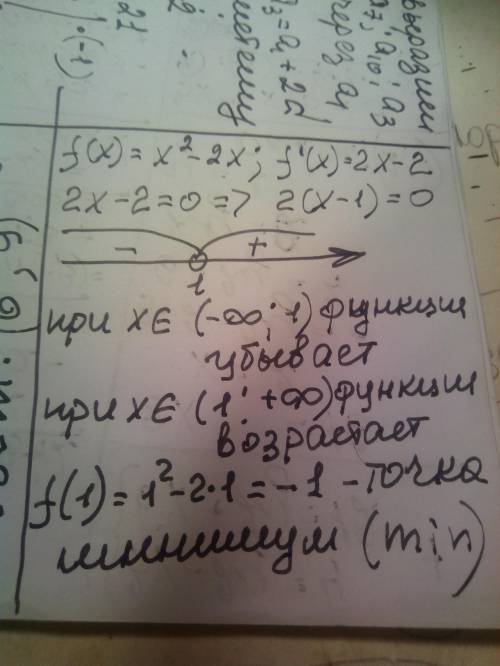 выразим
a₇; a₁₀; a₃
через a₁
a₃ = a₁ + 2d
21
| · (-1)
f(x) = x² - 2x; f'(x) = 2x - 2
2x - 2 = 0 => 2(x - 1) = 0
- +
1
при x ∈ (-∞; 1) функции
убывает
при x ∈ (1; +∞) функции
возрастает
f(1) = 1² - 2·1 = -1 - точка
минимум (min)